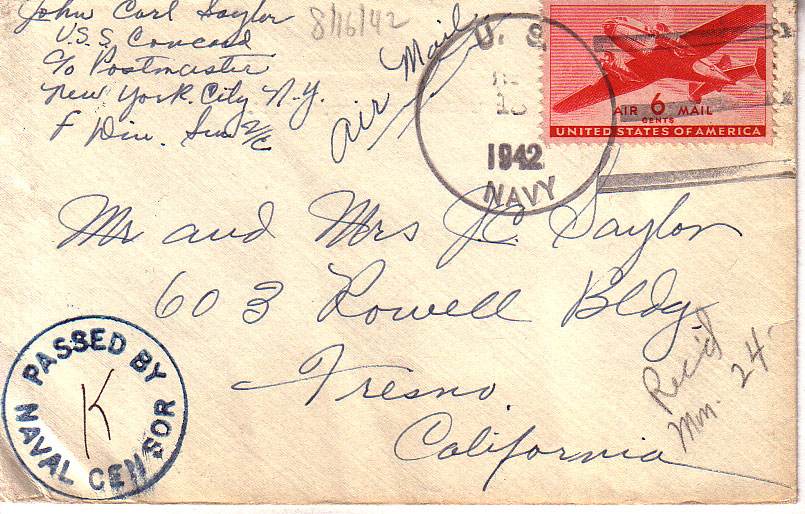 John Carl Saylor
U.S.S. Concord
c/o Postmaster
New York City N.Y.
F Div. Sea 2/c
8/16/42
Air Mail
U. S.
1942
NAVY
AIR 6 MAIL
CENTS
UNITED STATES OF AMERICA
Mr and Mrs J.C. Saylor
603 Rowell Bldg.
Fresno.
California
Rec'd
Mon. 24
PASSED BY
K
NAVAL CENSOR